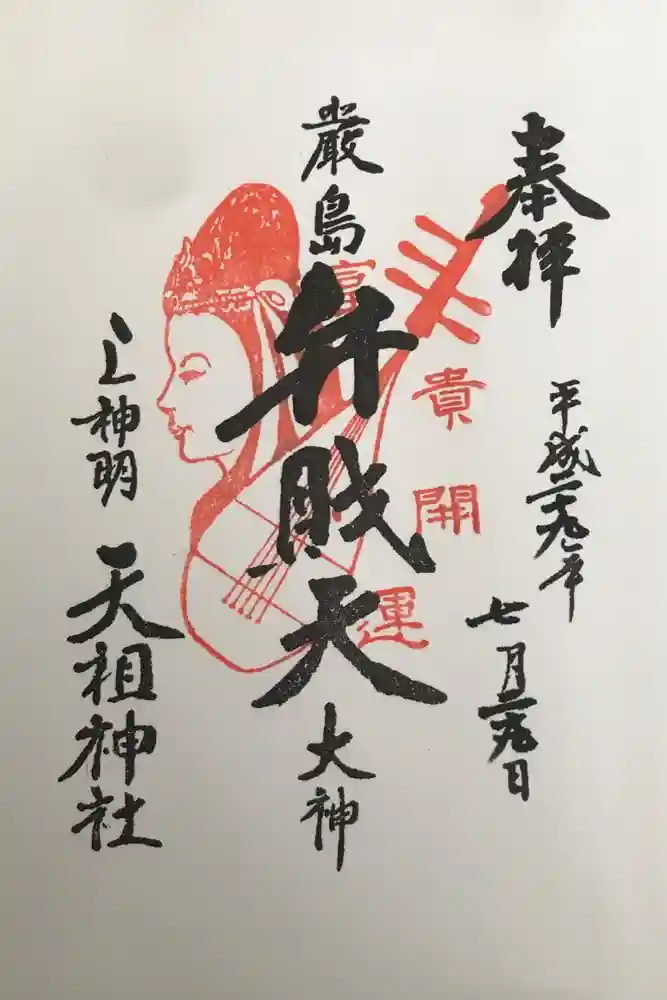 奉拝
平成二九年
七月二九日
厳島
弁財天
大神
富貴開運
上神明
天祖神社